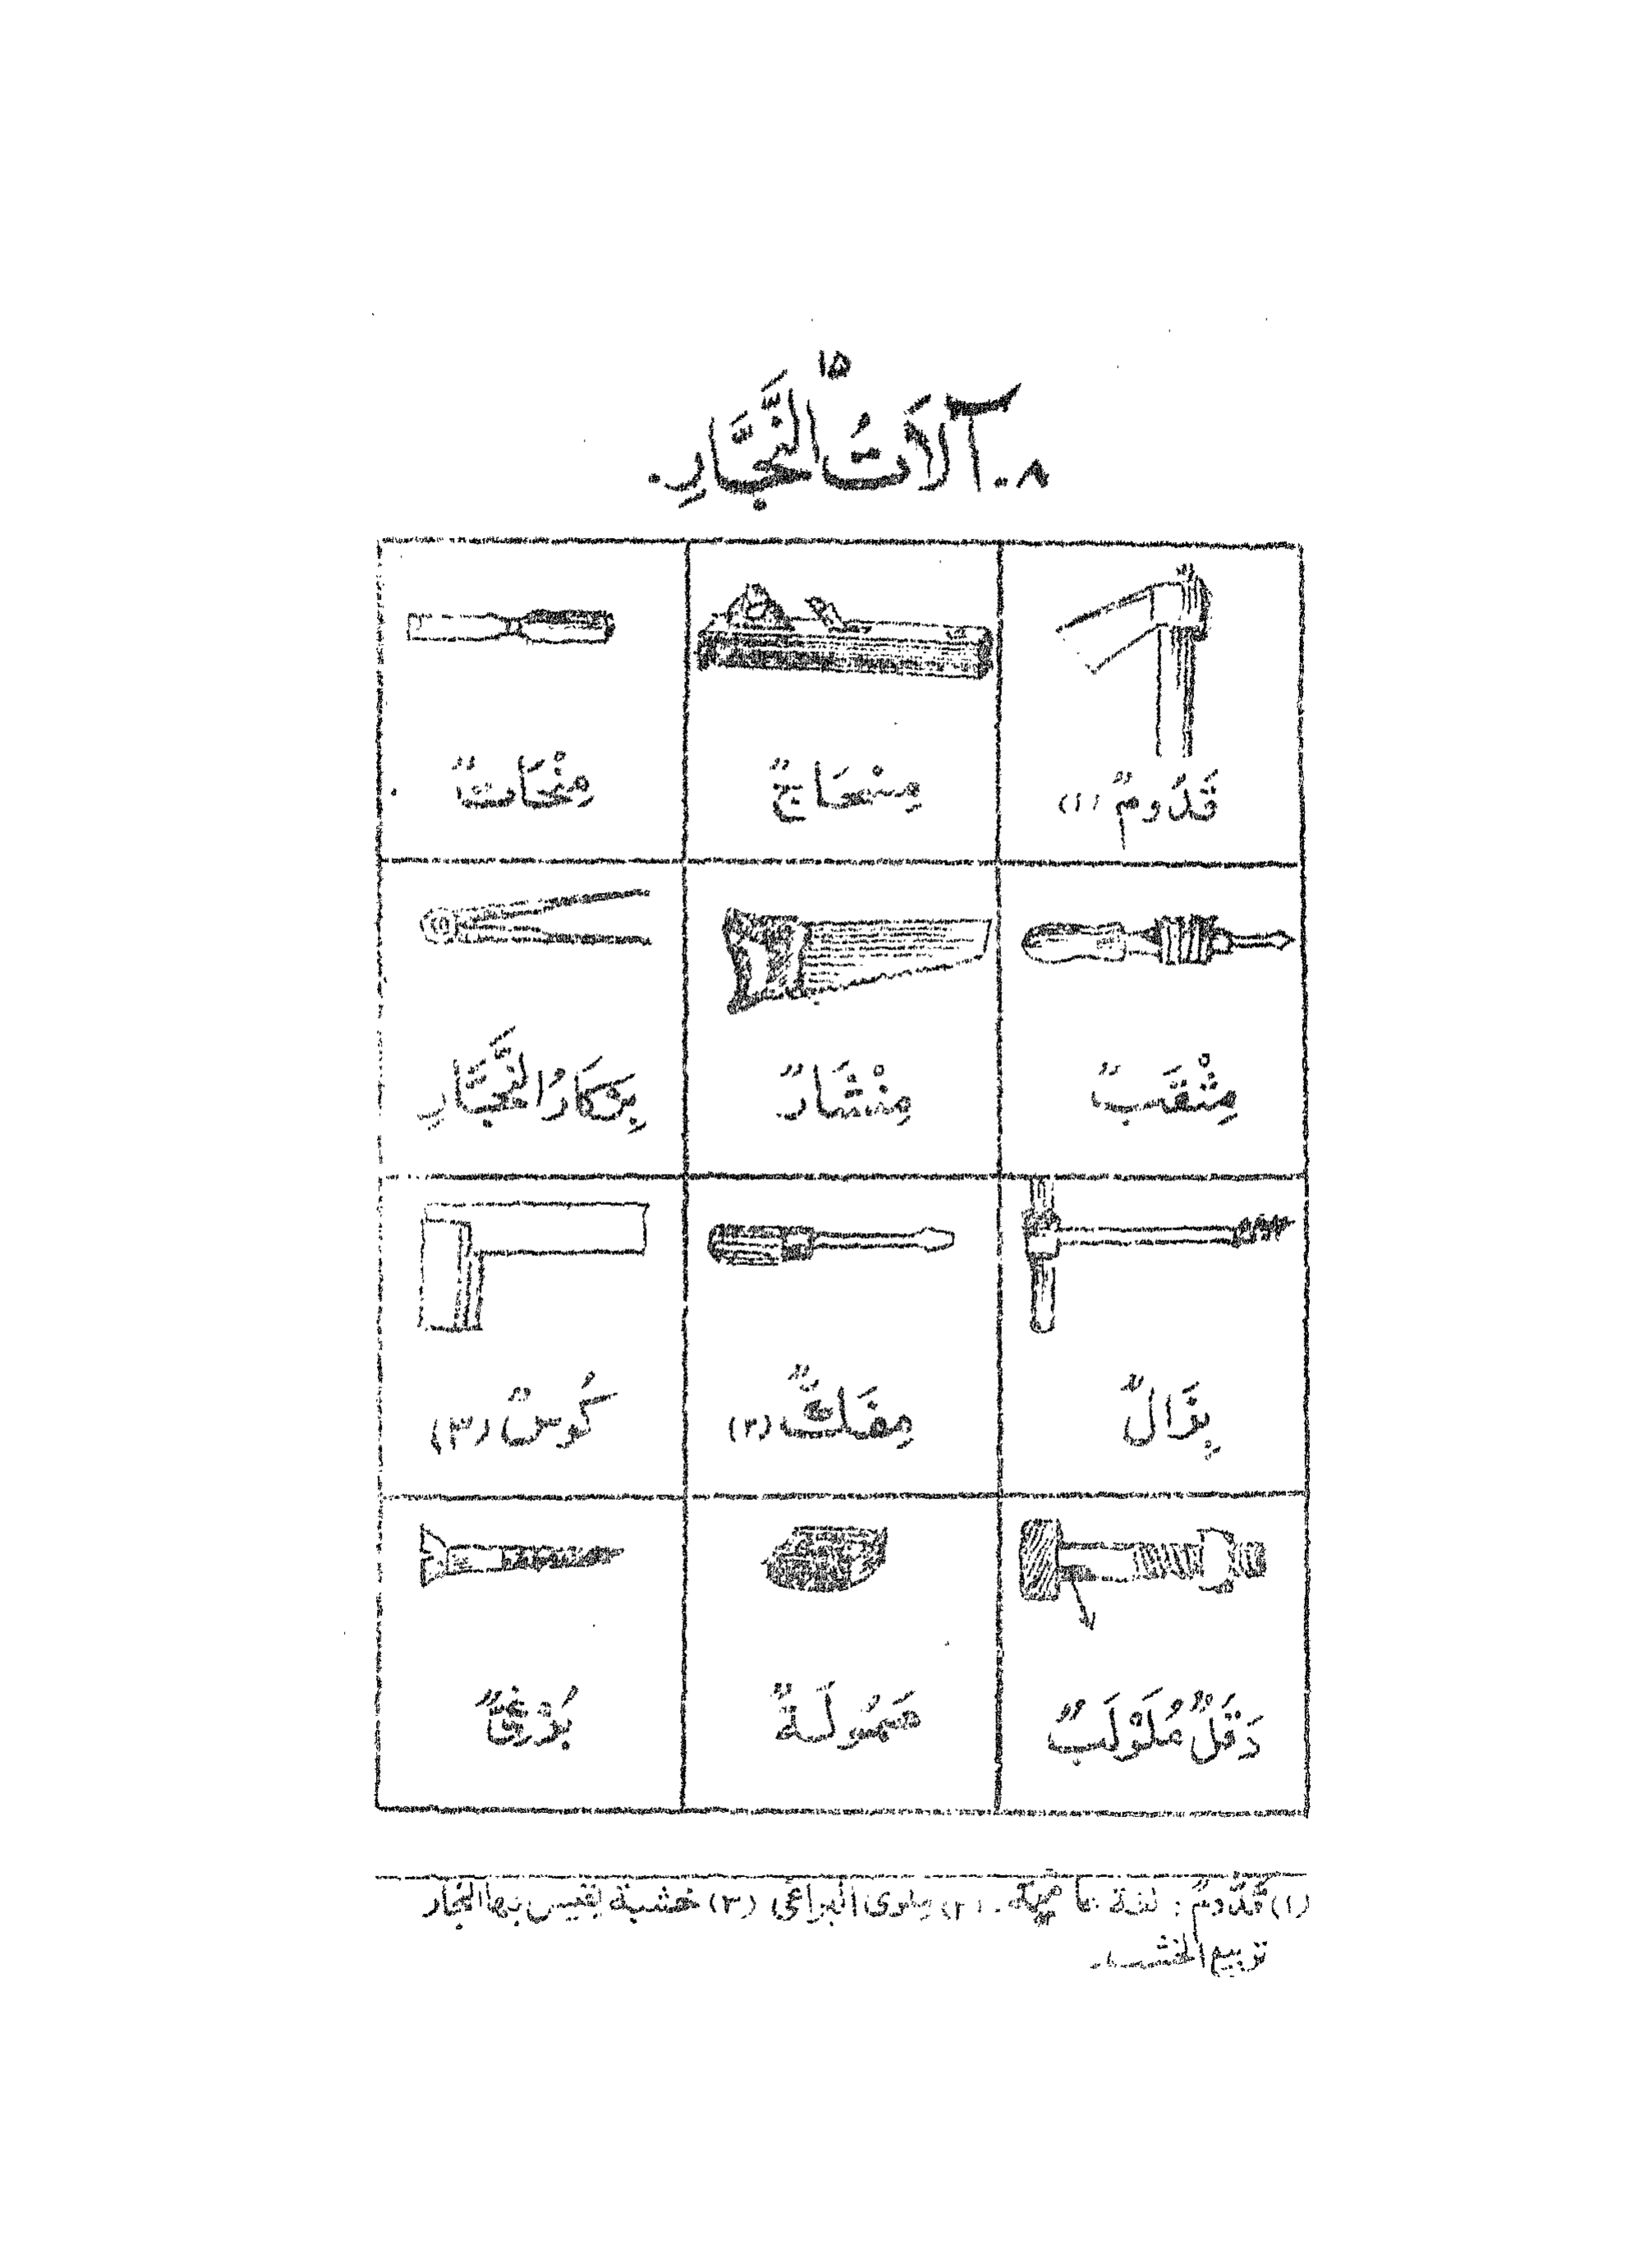 ١٥
٨. آلَاتُ النَّجَّارِ.
قَدُومٌ (١)
مِنْحَاجٌ
مِنْحَاتٌ
مِثْقَبٌ
مِنْشَارٌ
بِرْكَارُ النَّجَّارِ
بِزَالٌ
مِفَكٌّ (٢)
كُوسٌ (٣)
دَقَلٌ مُلَوْلَبٌ
صَمُولَةٌ
بُرْغِيٌّ
(١) قدّومٌ: لغة عامية. (٢) ملوى البراغي (٣) خشبة يقيس بها النجار
تربيع الخشب.